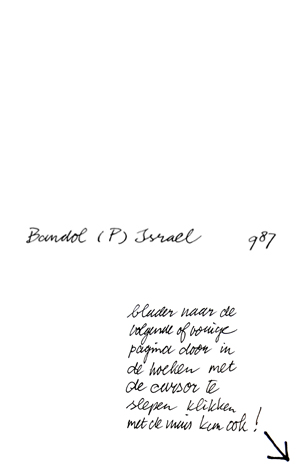 Bandol (P) Israel 987
blader naar de
volgende of vorige
pagina door in
de hoeken met
de cursor te
slepen klikken
met de muis kan ook!